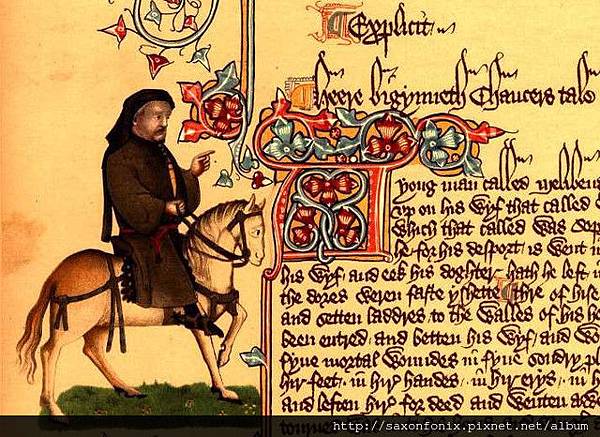 Explicit
Heere bigynneth Chaucers tale
A yong man called Melibeus
vp on his wyf that called
Which that called was
he for his desport is went in
his wyf and eek his doghter hath he left in
the dores weren faste yshette Thre of hise
and setten laddres to the walles of his
been entred and betten his wyf and
fyue mortal woundes in fyue sondry
hir feet in hir handes in hir erys in
and leften hir for deed and wenten
http://saxonfonix.pixnet.net/album